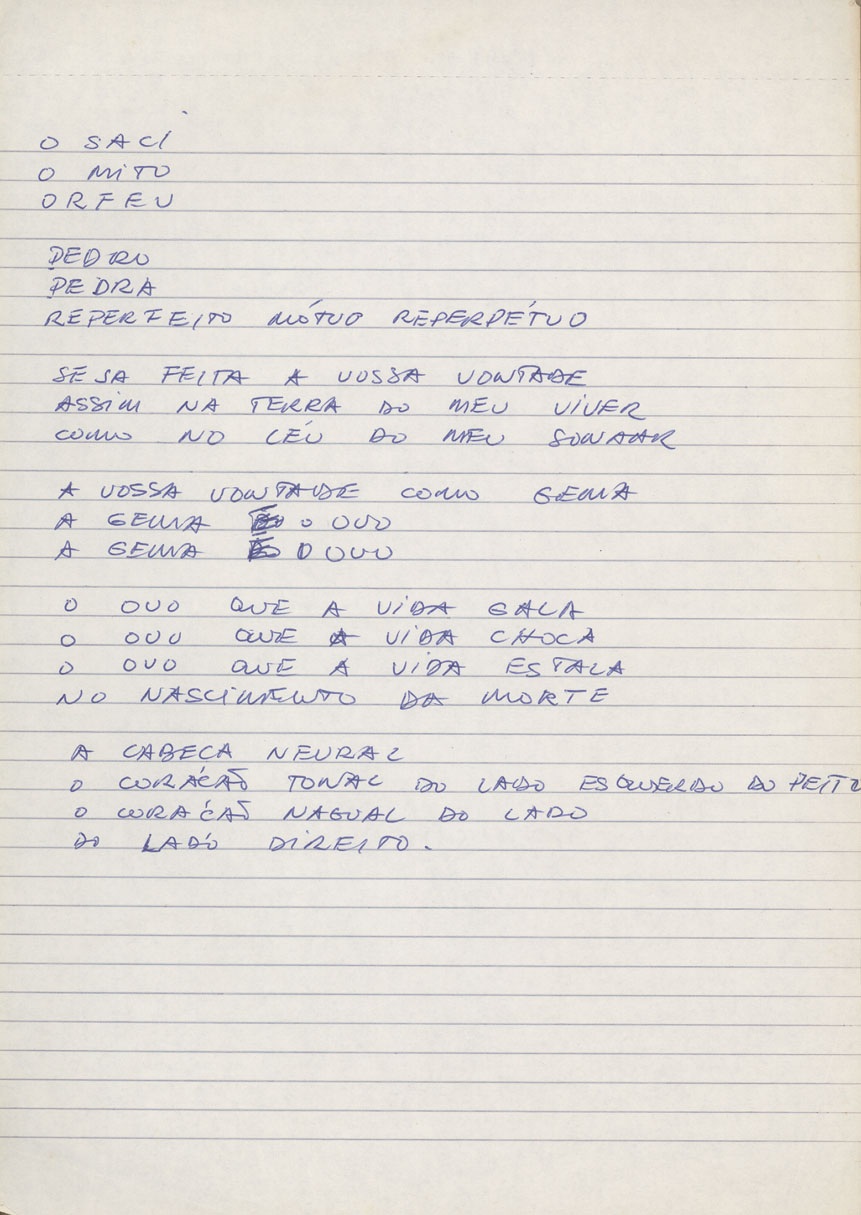 O SACI
O MITO
ORFEU
PEDRO
PEDRA
REPERFEITO MÓTUO REPERPÉTUO
SEJA FEITA A VOSSA VONTADE
ASSIM NA TERRA DO MEU VIVER
COMO NO CÉU DO MEU SONHAR
A VOSSA VONTADE COMO GEMA
A GEMA O OVO
A GEMA D OVO
O OVO QUE A VIDA GALA
O OVO QUE A VIDA CHOCA
O OVO QUE A VIDA ESTALA
NO NASCIMENTO DA MORTE
A CABECA NEURAL
O CORAÇÃO TONAL DO LADO ESQUERDO DO PEITO
O CORAÇÃO NAGUAL DO LADO
DO LADO DIREITO.